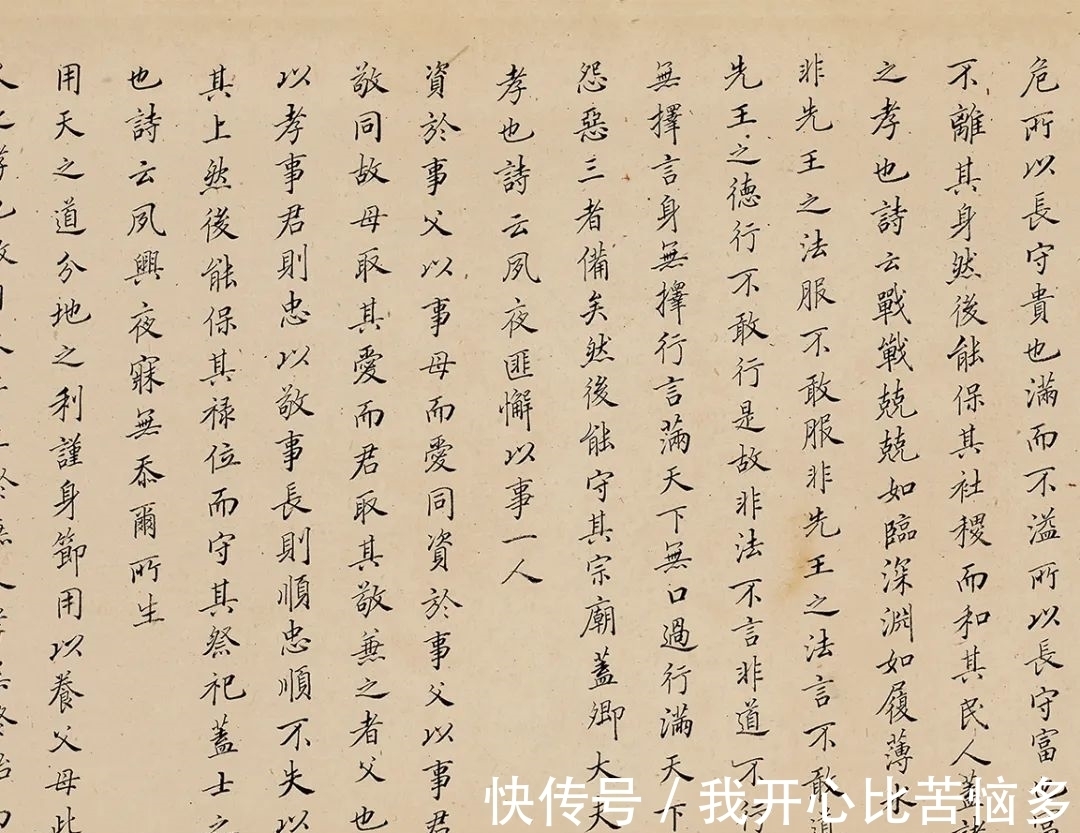 危所以長守貴也滿而不溢所以長守富也富
不離其身然後能保其社稷而和其民人蓋諸
之孝也詩云戰戰兢兢如臨深淵如履薄冰
非先王之法服不敢服非先王之法言不敢道
先王之德行不敢行是故非法不言非道不行
無擇言身無擇行言滿天下無口過行滿天下
怨惡三者備矣然後能守其宗廟蓋卿大夫
孝也詩云夙夜匪懈以事一人
資於事父以事母而愛同資於事父以事君
敬同故母取其愛而君取其敬兼之者父也
以孝事君則忠以敬事長則順忠順不失以
其上然後能保其祿位而守其祭祀蓋士之
也詩云夙興夜寐無忝爾所生
用天之道分地之利謹身節用以養父母此
快传号 / 我开心比苦恼多